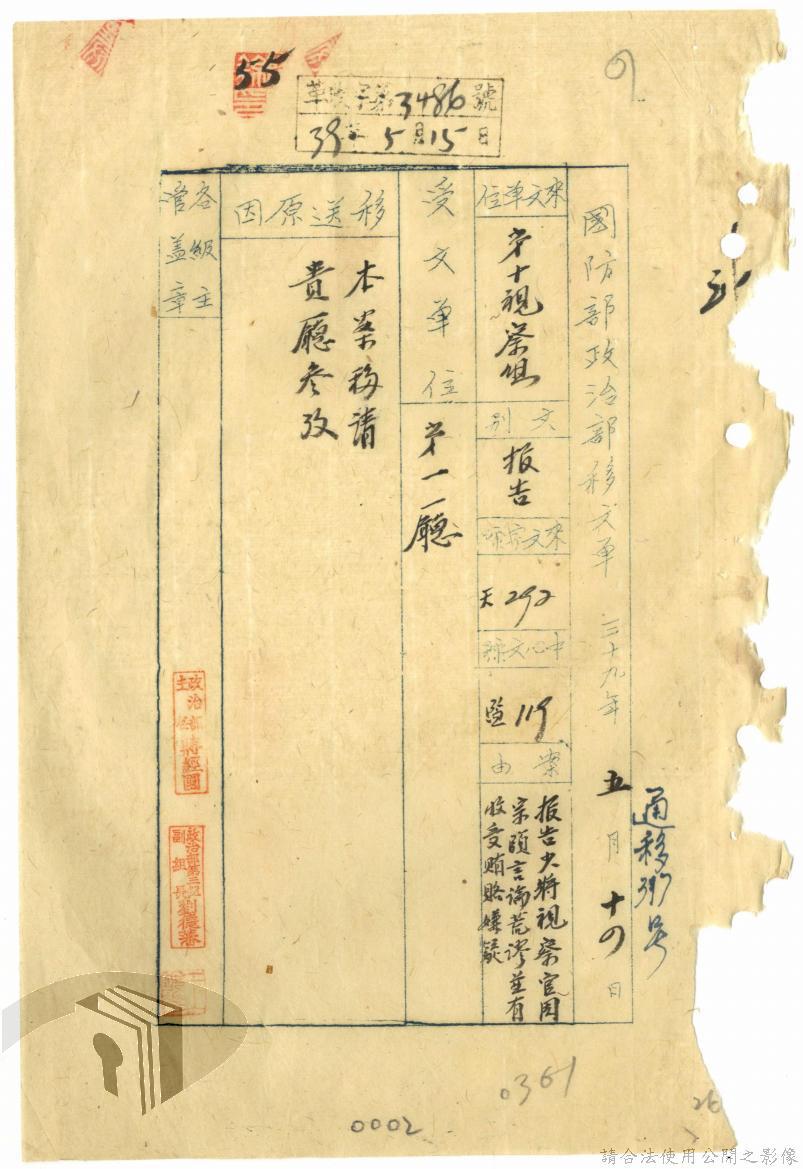 55
革 字第3486號
39年5月15日
國防部政治部移文單 三十九年五月十四日
來文單位
第十視察組
文別
報告
來文字號
天292
中心文號
監119
案由
报告少將視察官周
宗頤言論荒謬並有
收受賄賂嫌疑
受文單位
第一廳
移送原因
本案移請
貴廳參攷
各級主
管蓋章
政治部
主任
蔣經國
政治部第三組
副組長
0361
26
0002
請合法使用公開之影像